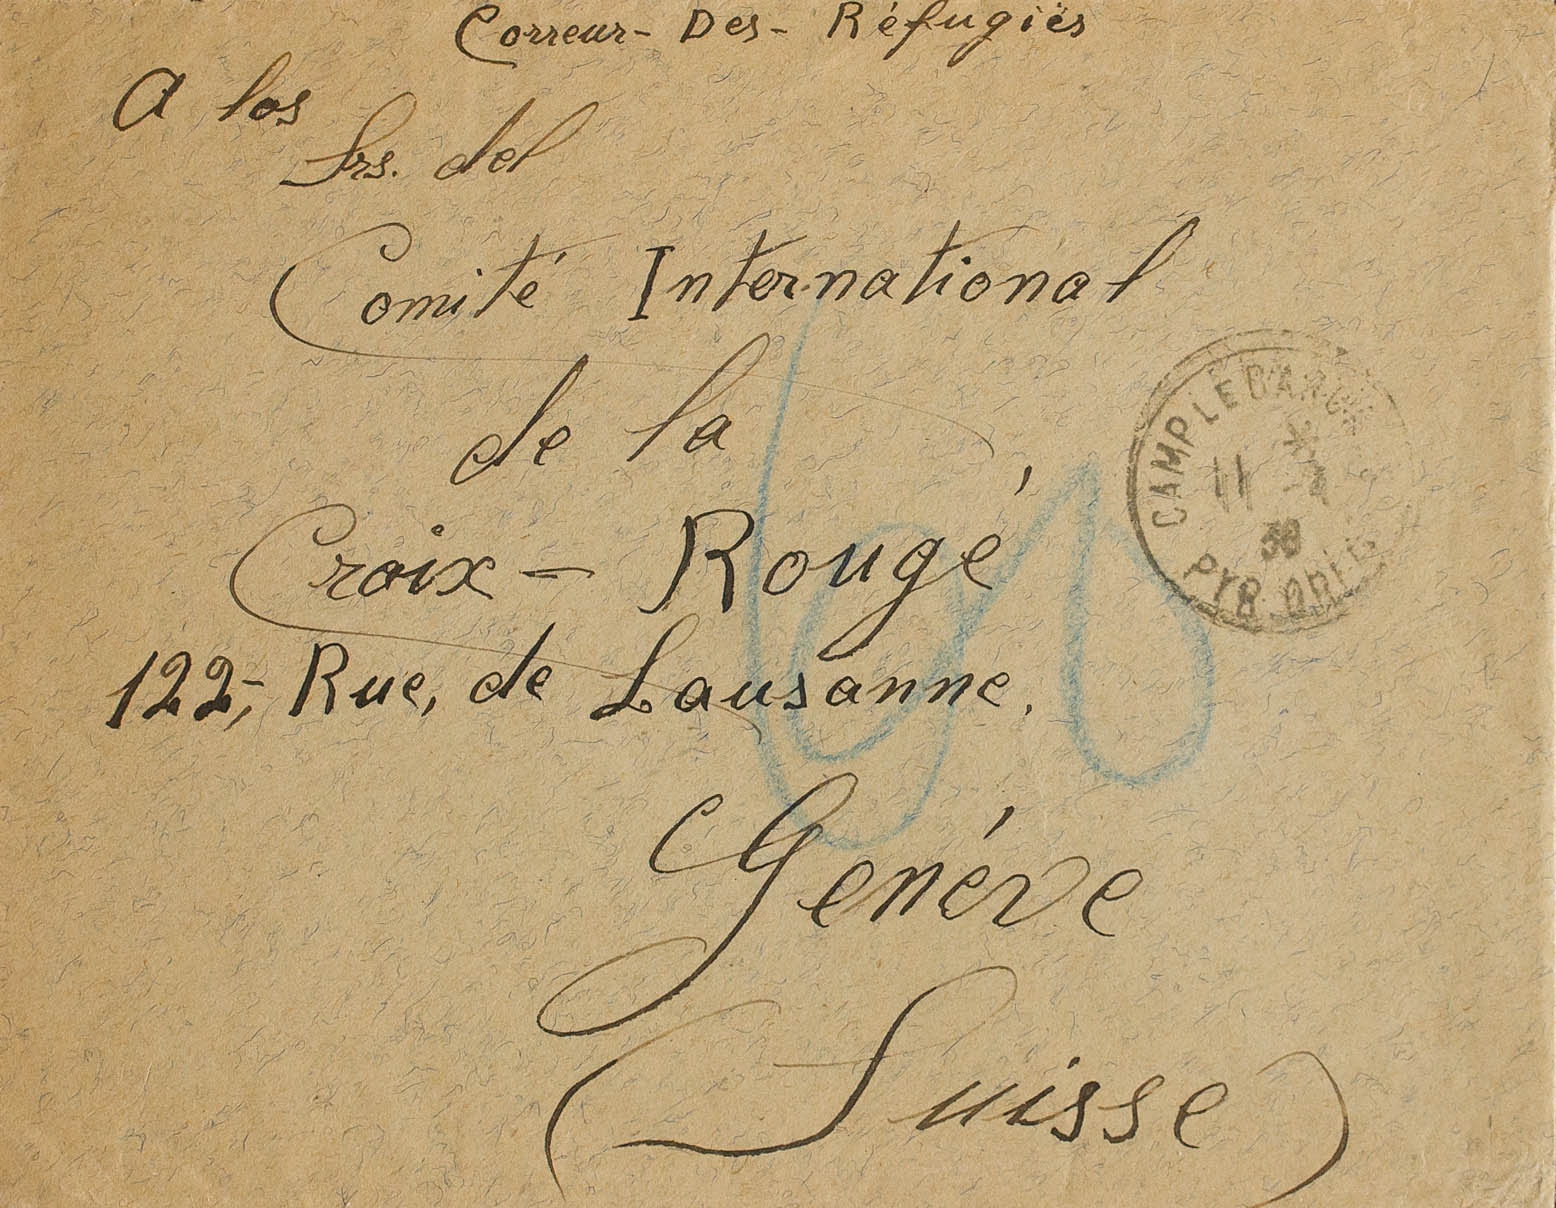 Correur - Des - Réfugiés
A los
Srs. del
Comité International
de la
Croix - Rougé
122,- Rue, de Lausanne.
Genéve
Suisse
CAMP LE BARCARES
11 - 4
39
PYR. ORLES